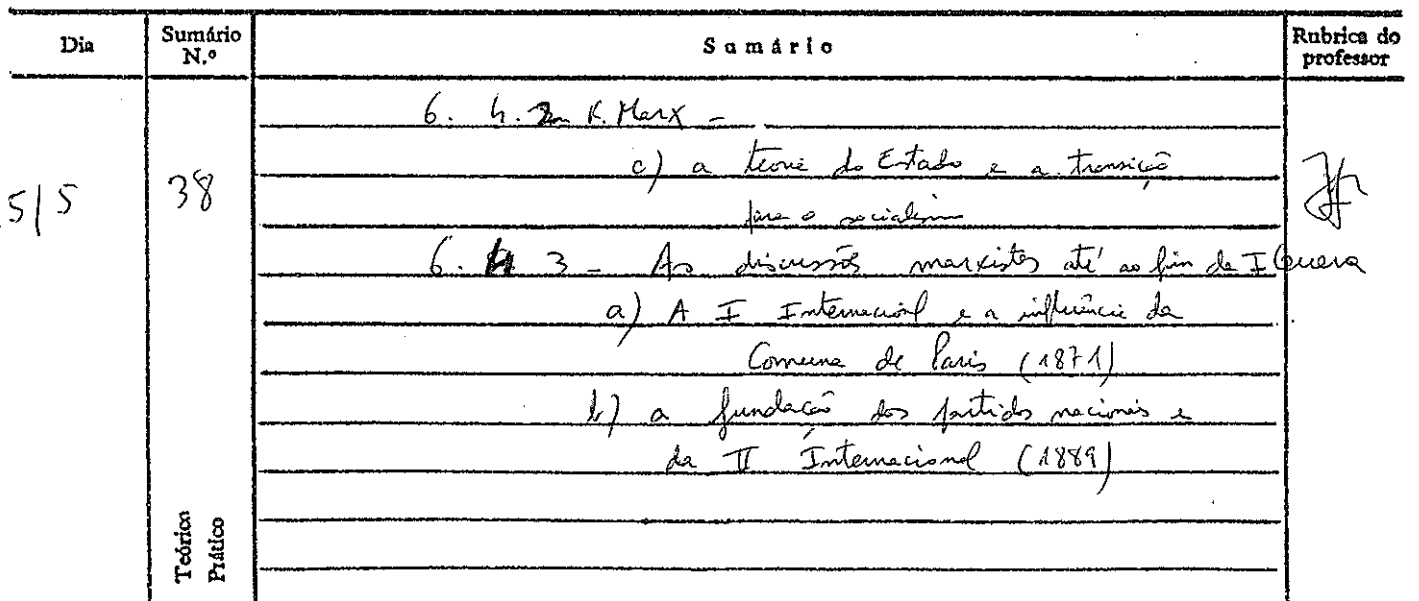 Dia
Sumário N.º
Sumário
Rubrica do professor
5/5
38
6. 4. 2 K. Marx -
c) a teoria do Estado e a transição
para o socialismo
6. 4 3 - As discussões marxistas até ao fim da I Guerra
a) A I Internacional e a influência da
Comuna de Paris (1871)
b) a fundação dos partidos nacionais e
da II Internacional (1889)
Teórico
Prático